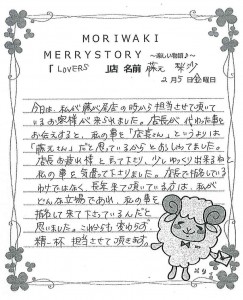 MORIWAKI
MERRYSTORY ～楽しい物語♪～
「LOVERS 」店 名前 藤元 
2月5日金曜日
今日、私が藤が尾店の時から担当させて頂いて
いるお客様が来られました。店長が代わった事を
お伝えすると、私の事を「店長さん」というよりは
「藤元さん」だと思っているからとおっしゃってました。
店長お疲れ様と言って下さり、少しゆっくり出来るねと
私の事を気遣って下さりました。店長で指名している
わけではなく、長年きて頂いている方は、私が
どんな立場であれ、私の事を
指名して来て下さっているんだと
思いました。これからも変わらず
精一杯担当させて頂きます。